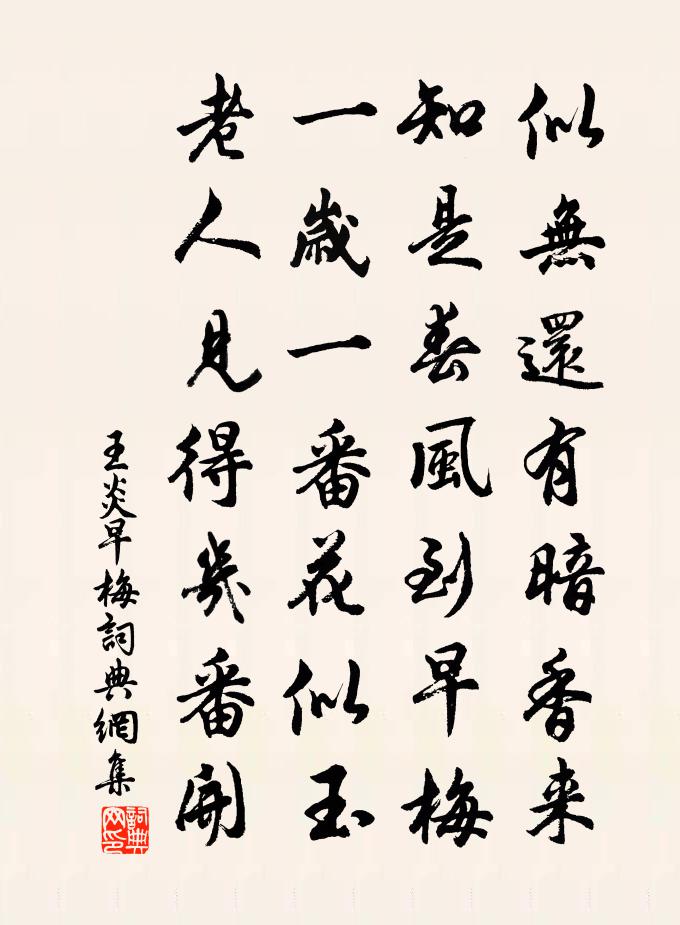 似無還有暗香来
知是春風到早梅
一歲一番花似玉
老人見得幾番開
王炎早梅詞典網集
詞典
网印